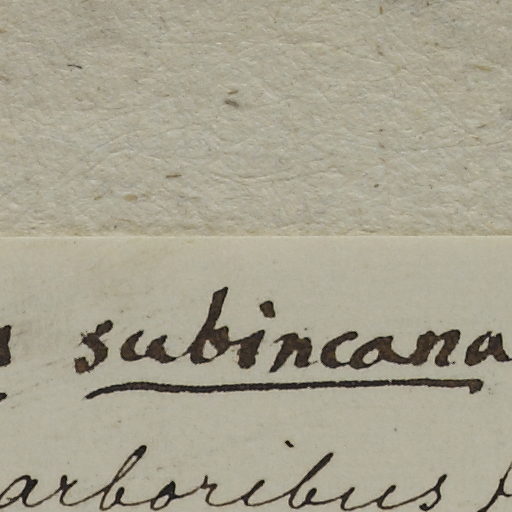 subincana
arboribus